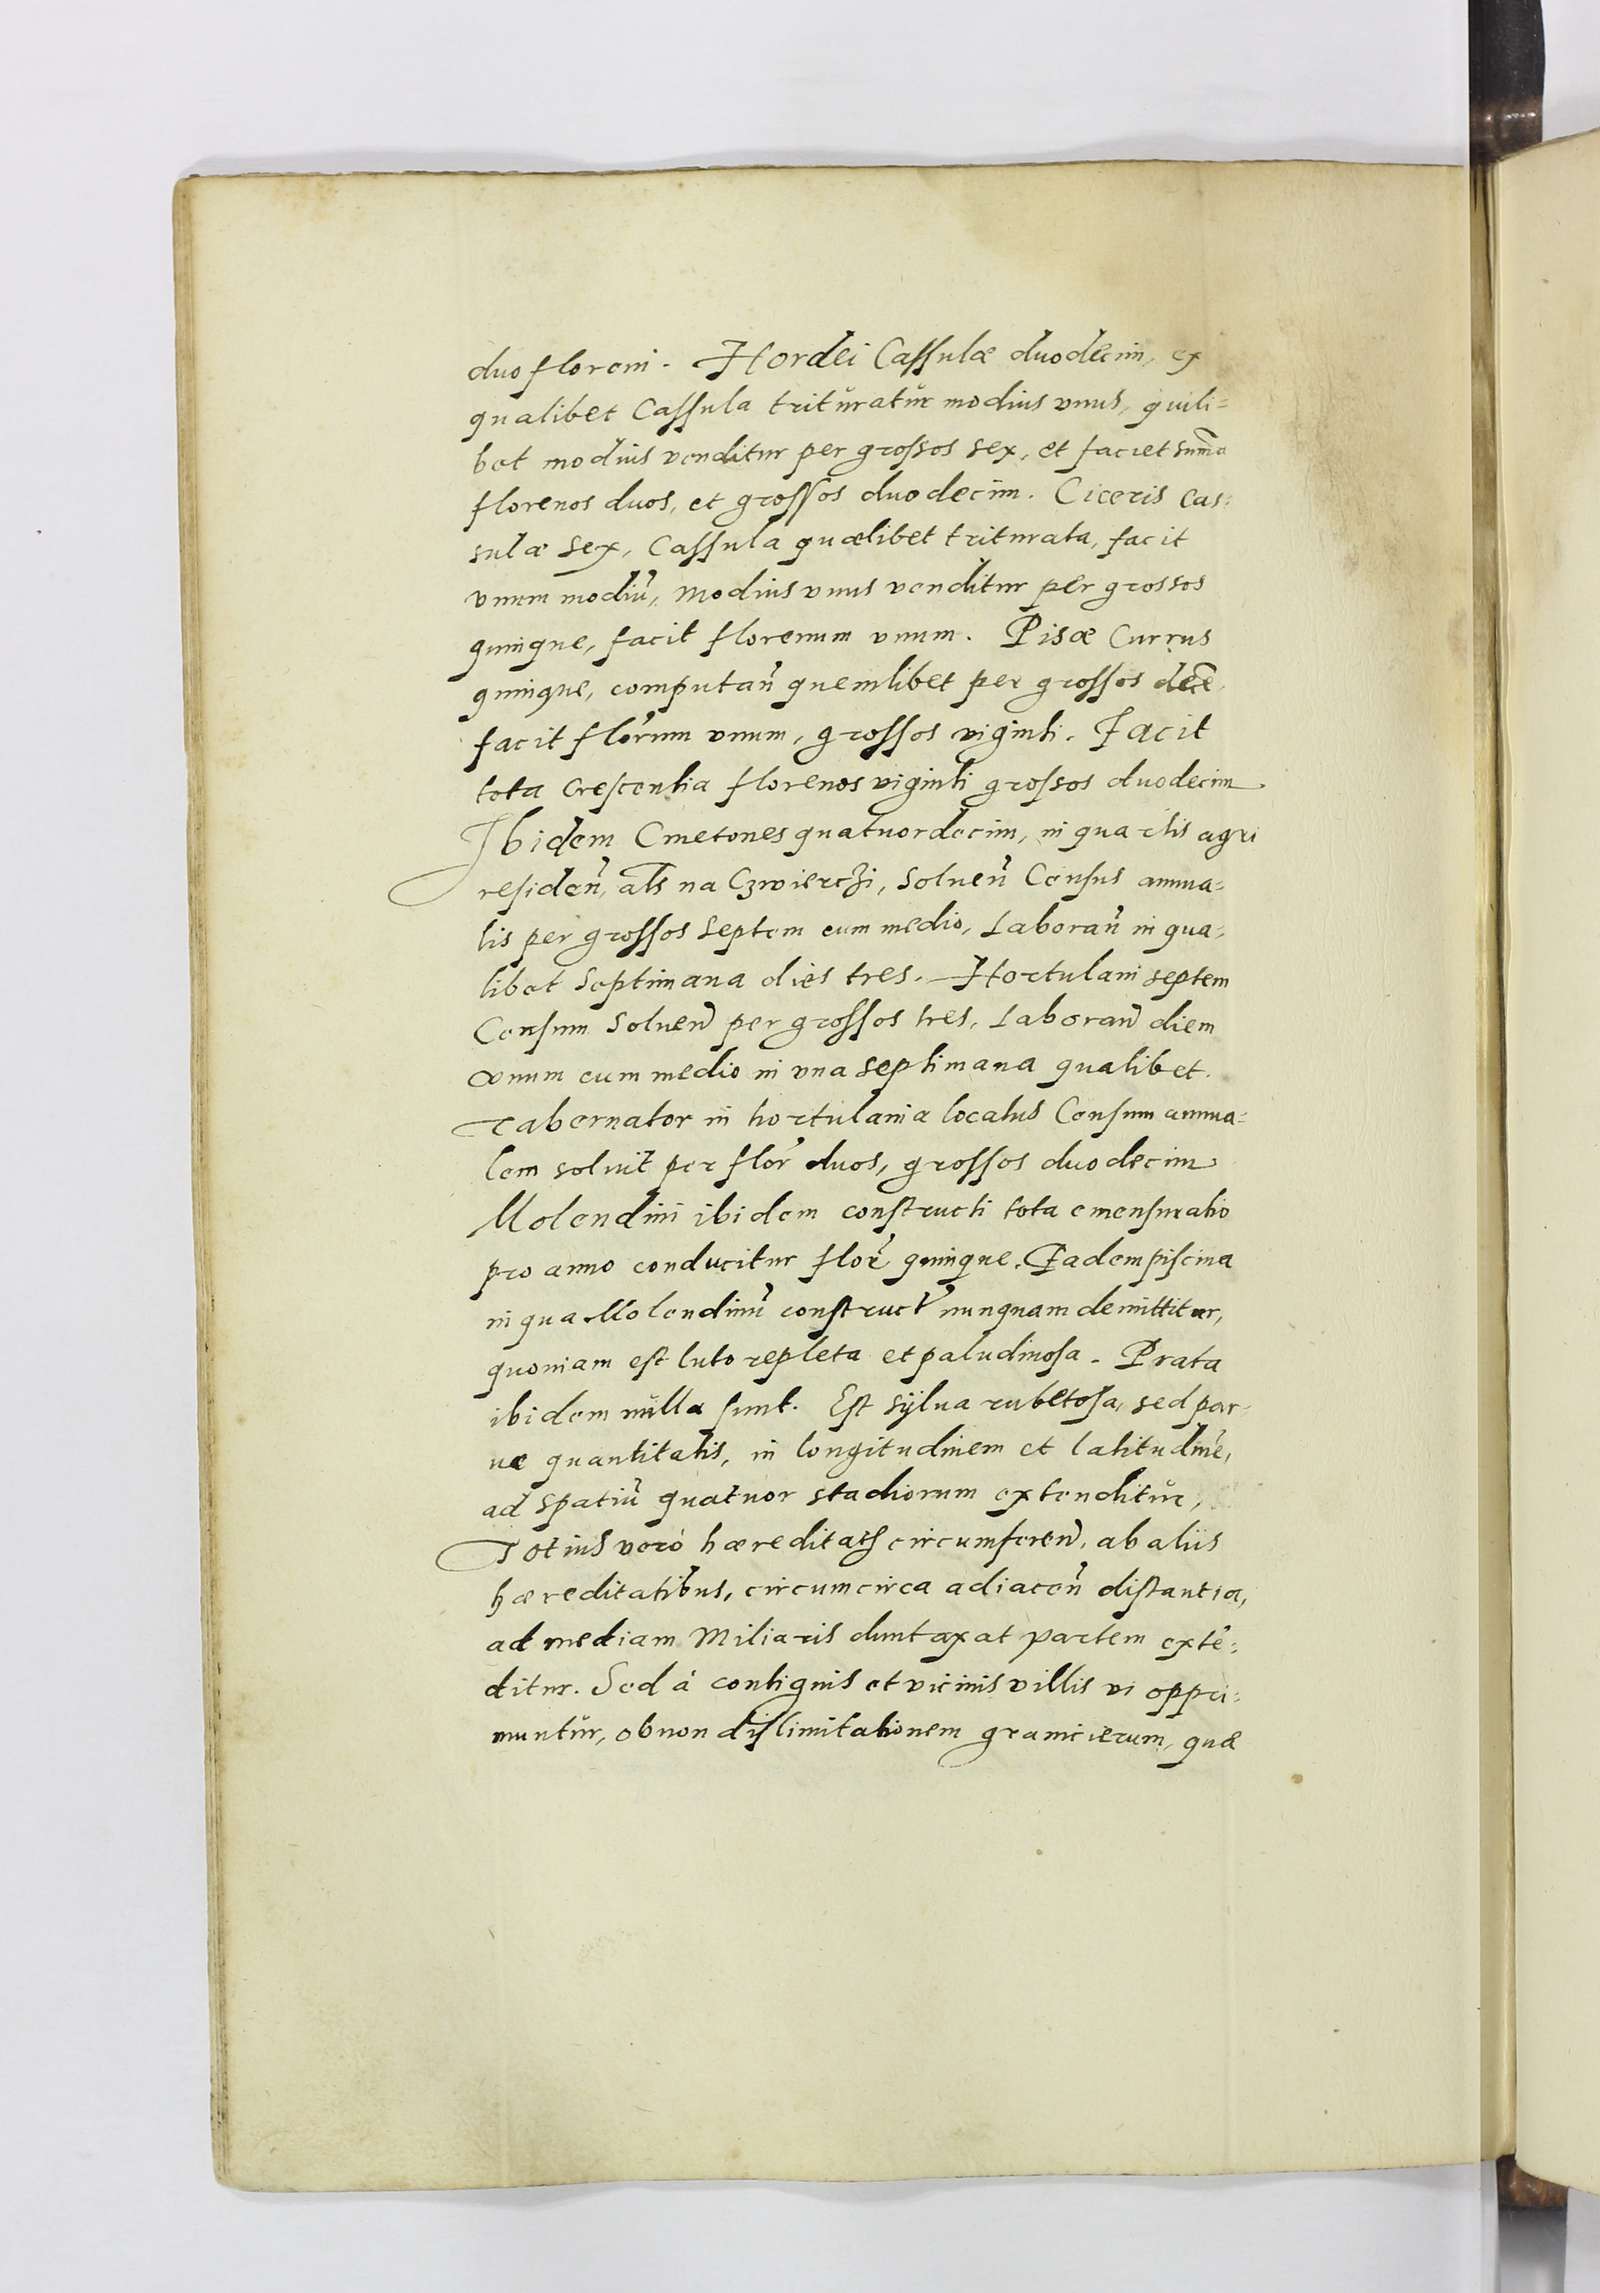 duo floreni. Hordei Cassulæ duodecim, ex
qualibet Cassula trituratur modius vnus, quili=
bet modius venditur per grossos sex, et faciet sum̃a
florenos duos, et grossos duodecim. Ciceris Cas=
sulæ sex, Cassula quælibet triturata, facit
vnum modiũ, Modius vnus venditur per grossos
quinque, facit florenum vnum. Pisæ Currus
quinque, computañ quemlibet per grossos decẽ
facit flor̃um vnum, grossos viginti. Facit
tota Crescentia florenos viginti grossos duodecim
Ibidem Cmetones quatuordecim, in quartis agri
resideñ, als na Czwierczi, Solueñ Census annua=
lis per grossos Septem cum medio, Laborañ in qua=
libet Septimana dies tres. Hortulani septem
Censum Solueñ per grossos tres, Laborañ diem
vnum cum medio in vna septimana qualibet.
Tabernator in hortulania locatus Censum annua=
lem soluit per flor̃ duos, grossos duodecim
Molendini ibidem constructi tota emensuratio
pro anno conducitur flor̃ quinque. Eadem piscina
in qua Molendinũ construct̃ nunquam demittitur,
quoniam est luto repleta et paludinosa. Prata
ibidem nulla sunt. Est sÿlua rubetosa, sed par=
uæ quantitatis, in longitudinem et latitudinẽ,
ad spatiũ quatuor stadiorum extenditur,
Totius verò hæreditatis circumfereñ, ab aliis
hæreditatibus, circumcirca adiaceñ distantia,
ad mediam Miliaris duntaxat partem extẽ=
ditur. Sed à contiguis et vicinis villis vi oppri=
muntur, ob non dislimitationem granicierum, quæ